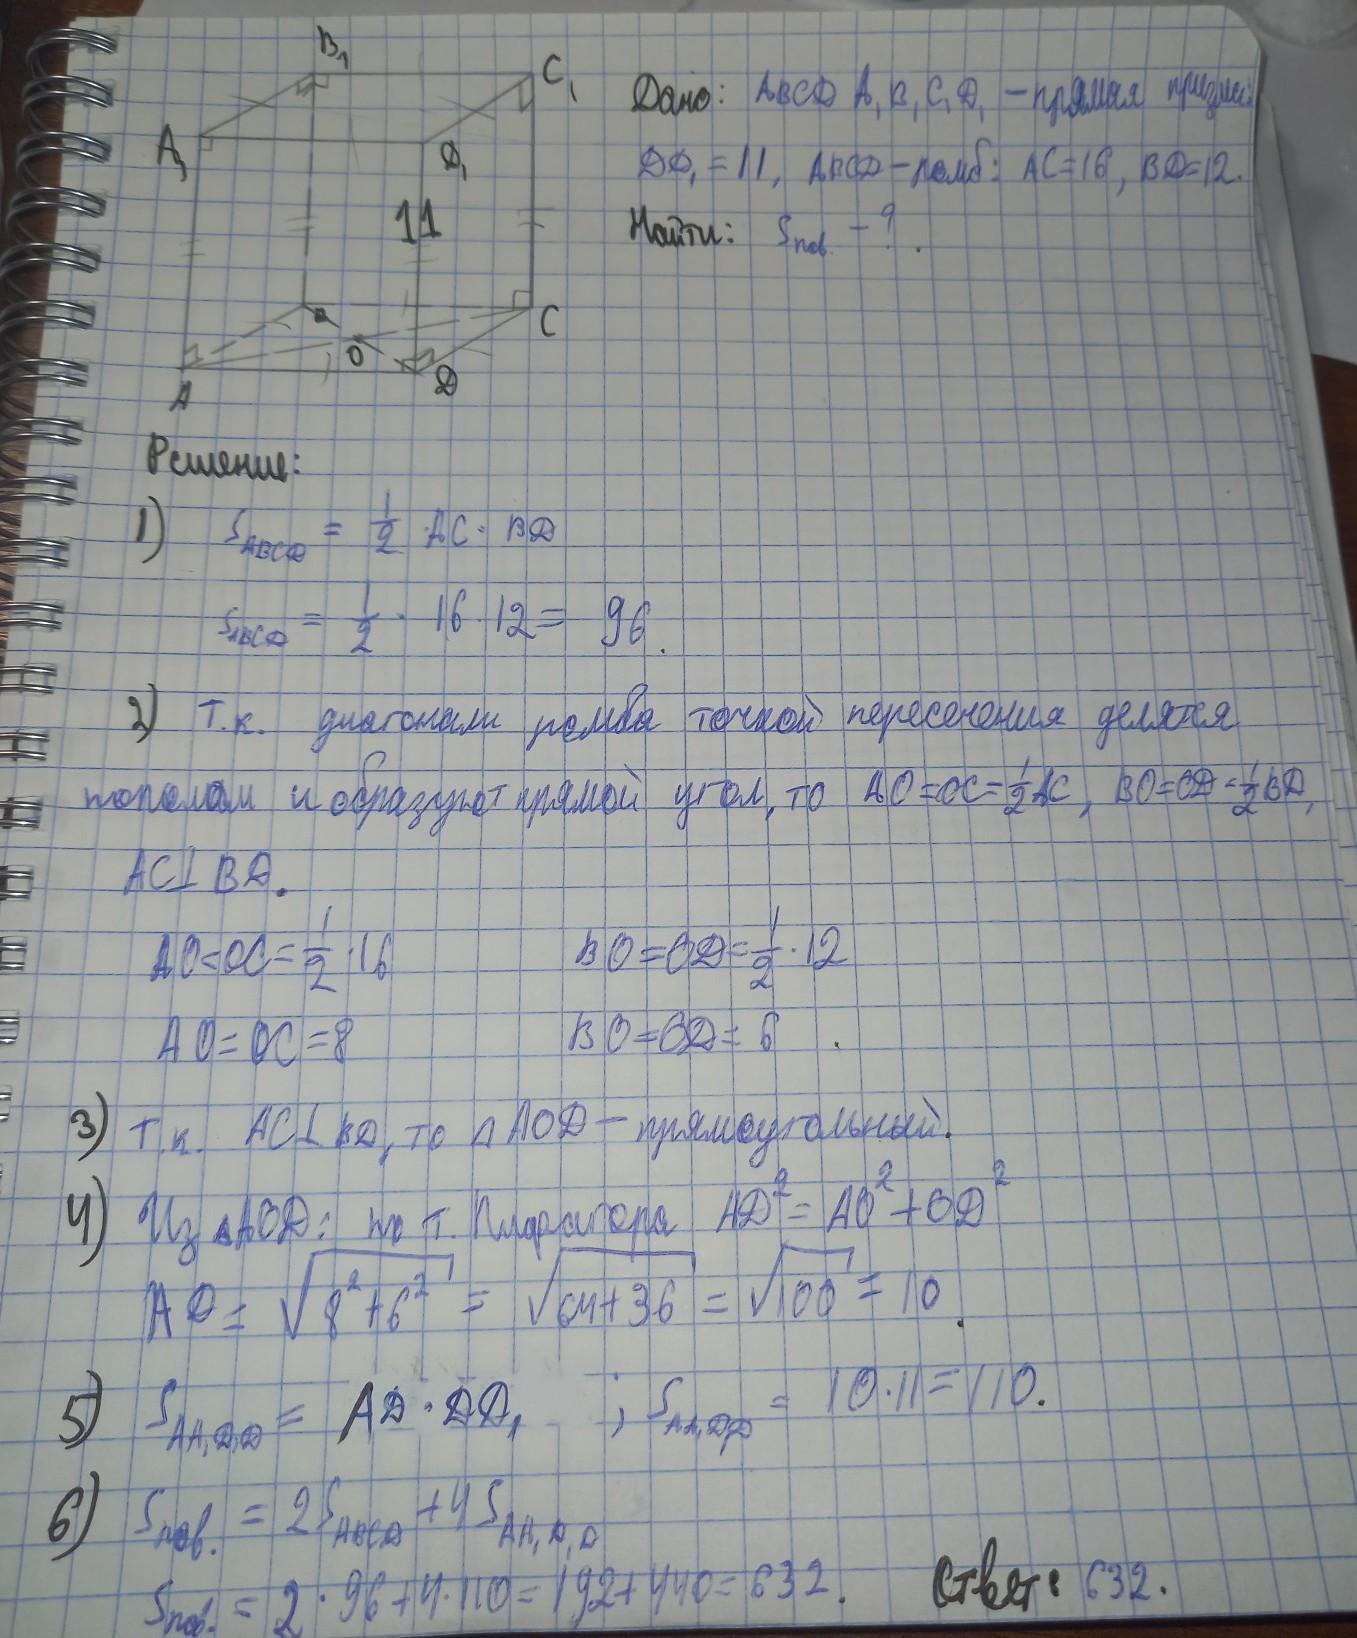 B₁
C₁
A₁
D₁
11
C
O
D
A
Дано: ABCD A₁B₁C₁D₁ – прямая призма
DD₁ = 11, ABCD – ромб: AC=16, BD=12.
Найти: Sпов. – ?.
Решение:
1) S_ABCD = 1/2 · AC · BD
S_ABCD = 1/2 · 16 · 12 = 96.
2) Т.к. диагонали ромба точкой пересечения делятся
пополам и образуют прямой угол, то AO=OC=1/2 AC, BO=OD=1/2 BD,
AC⊥BD.
AO=OC=1/2·16 BO=OD=1/2·12
AO=OC=8 BO=OD=6.
3) Т.к. AC⊥BD, то △AOD – прямоугольный.
4) Из △AOD: по т. Пифагора AD²=AO²+OD²
AD = √(8²+6²) = √(64+36) = √100 = 10.
5) S_AA₁D₁D = AD · DD₁ ; S_AA₁D₁D = 10·11=110.
6) Sпов. = 2S_ABCD + 4S_AA₁D₁D
Sпов. = 2·96+4·110=192+440=632. Ответ: 632.